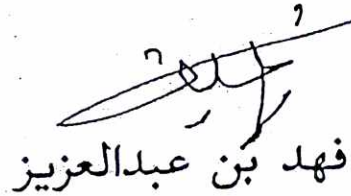 فهد بن عبدالعزيز